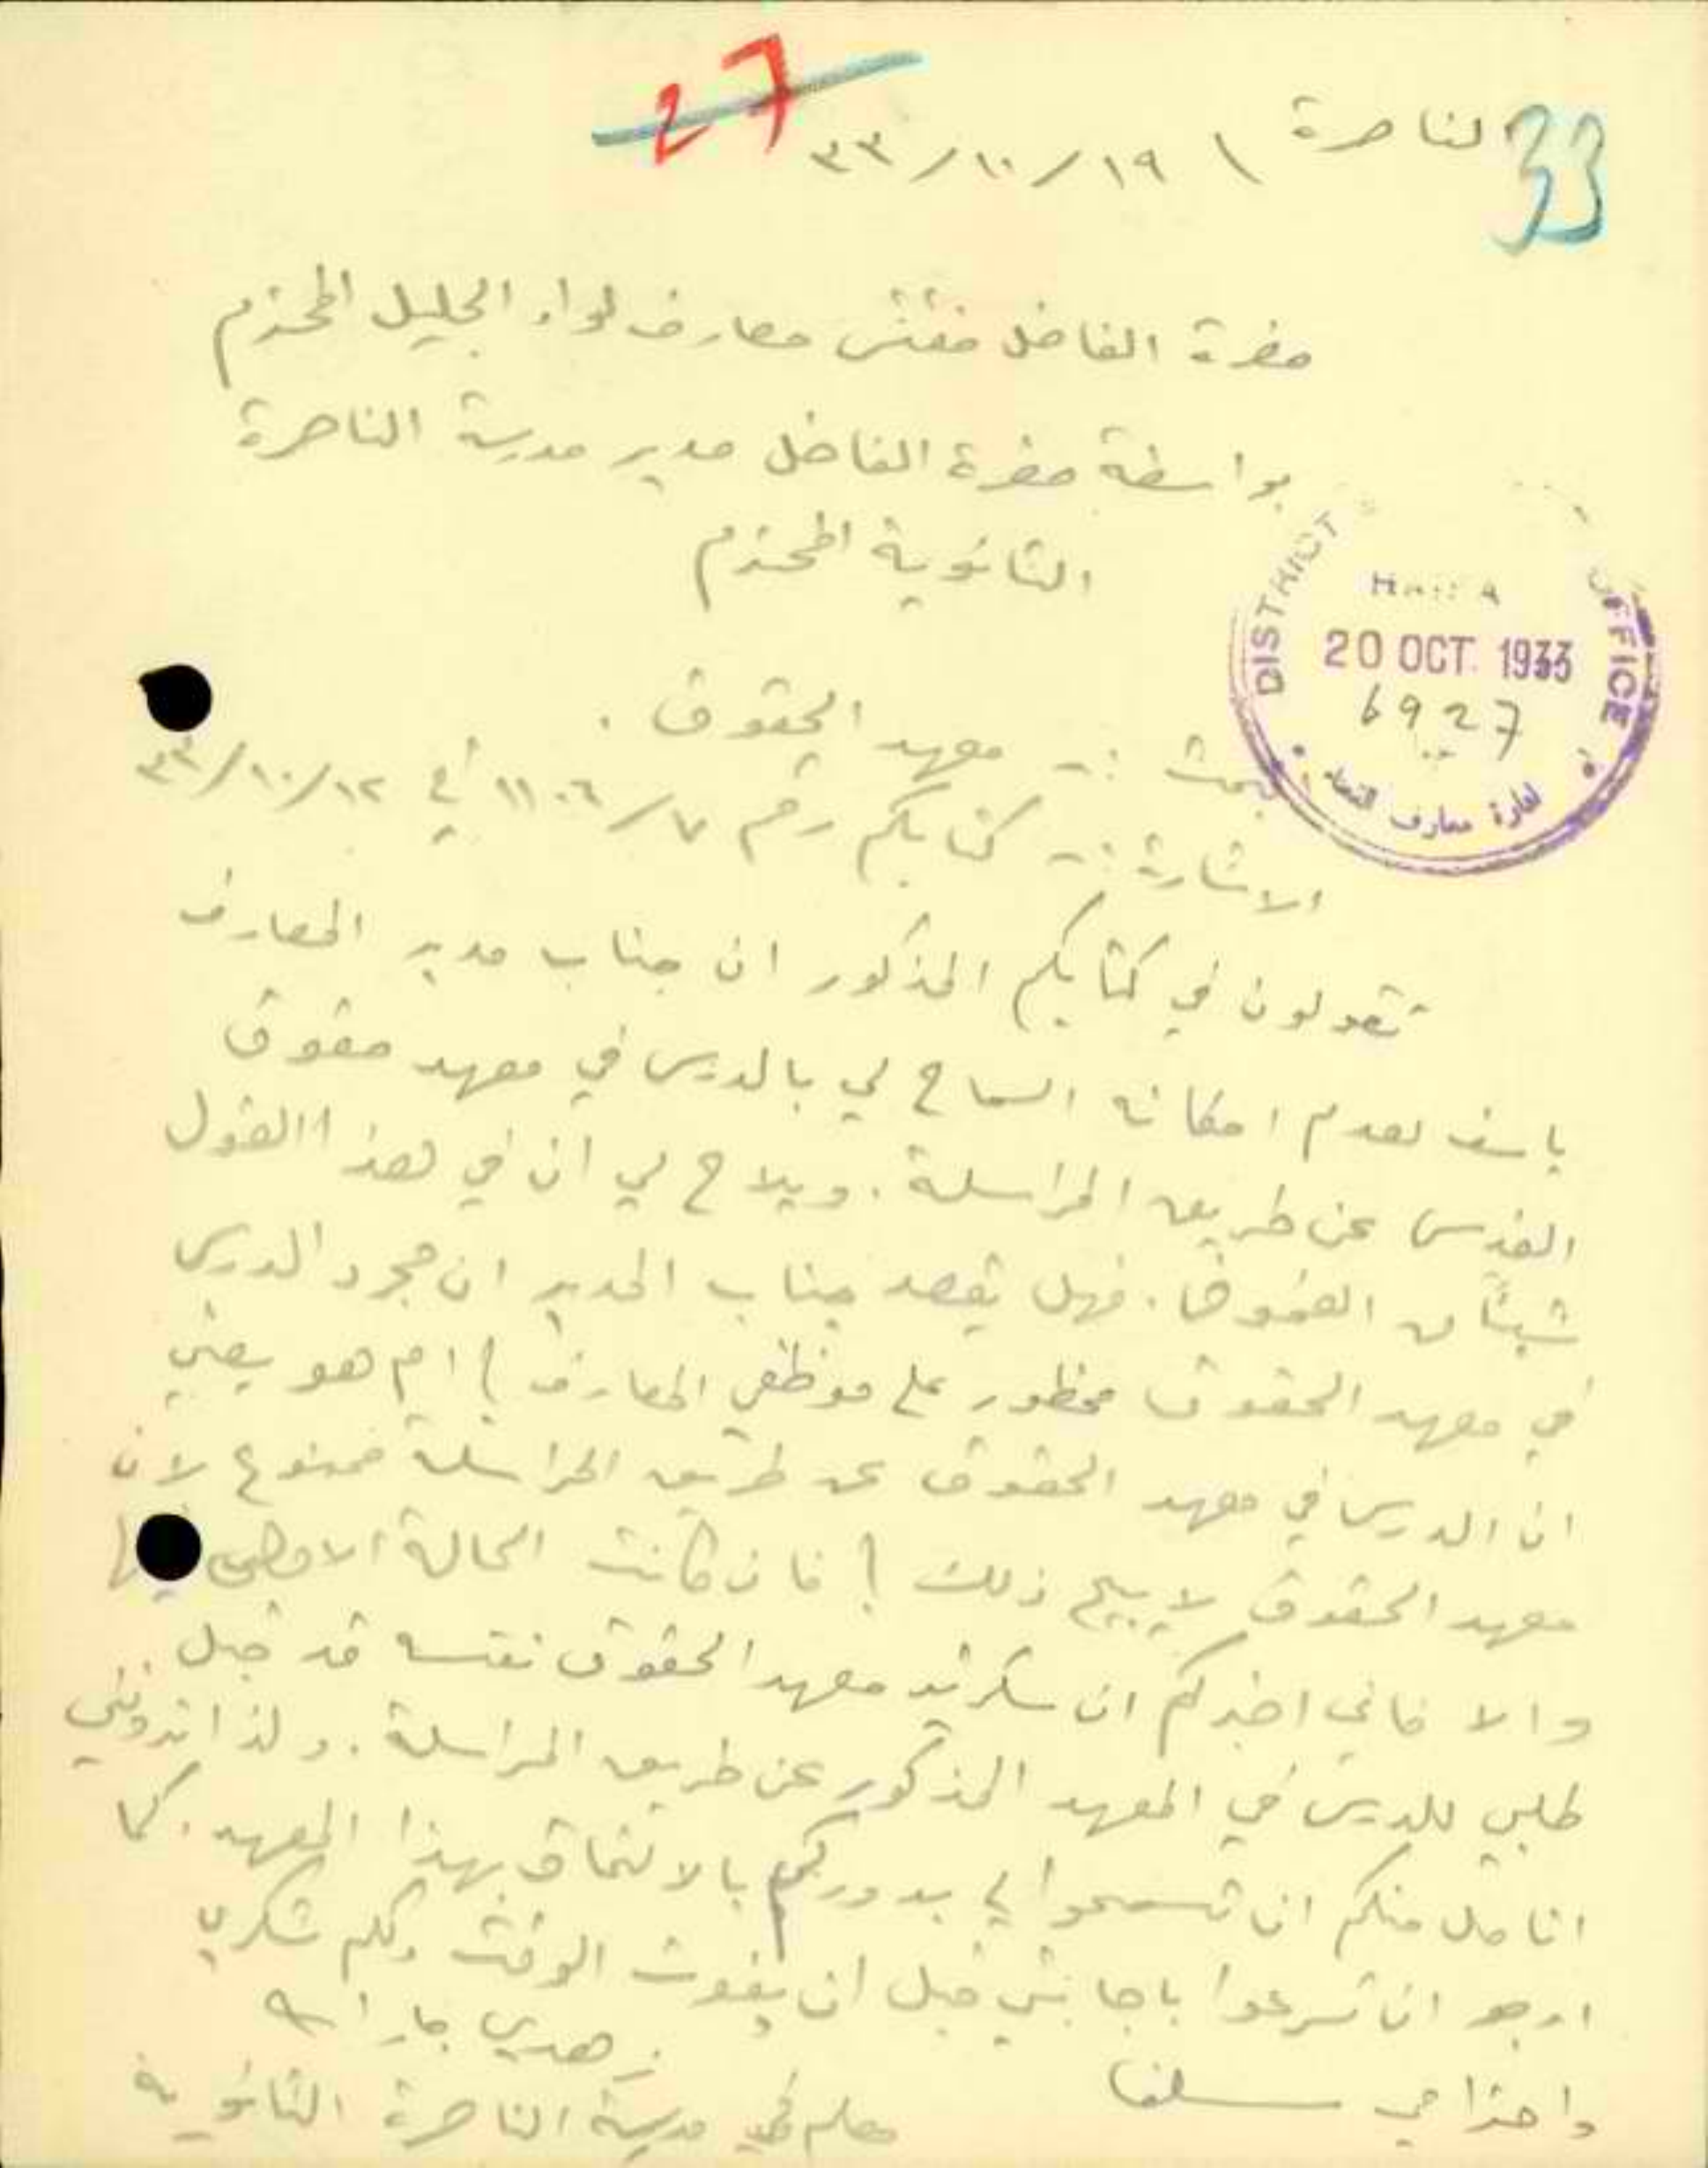 27
33
الناصرة \ ١٩/١٠/٣٣
حضرة الفاضل مفتش معارف لواء الجليل المحترم
بواسطة حضرة الفاضل مدير مدرسة الناصرة
الثانوية المحترم
DISTRICT OFFICE
HAIFA
20 OCT. 1933
6927
ادارة معارف
البحث :- معهد الحقوق .
الاشارة :- كتابكم رقم ٧/١١٠٦ في ١٢/١٠/٣٣
تقولون في كتابكم المذكور ان جناب مدير المعارف
ياسف لعدم امكانه السماح لي بالدرس في معهد حقوق
القدس عن طريق المراسلة . ويلاح لي ان في هذا القول
شيئاً من الغموض . فهل يقصد جناب المدير ان مجرد الدرس
في معهد الحقوق محظور على موظفي المعارف ؟ ام هو يعني
ان الدرس في معهد الحقوق عن طريق المراسلة ممنوع لان
معهد الحقوق لا يبيح ذلك ؟ فان كانت الحالة الاولى
والا فاني اخبركم ان سكرتير معهد الحقوق نفسه قد قبل
طلبي للدرس في المعهد المذكور عن طريق المراسلة . ولذا ترونني
اتامل منكم ان تسمحوا لي بدوركم بالالتحاق بهذا المعهد . كما
ارجو ان تسرعوا باجابتي قبل ان يفوت الوقت ولكم شكري
واحترامي سلفا
زهدي جار الله
معلم في مدرسة الناصرة الثانوية